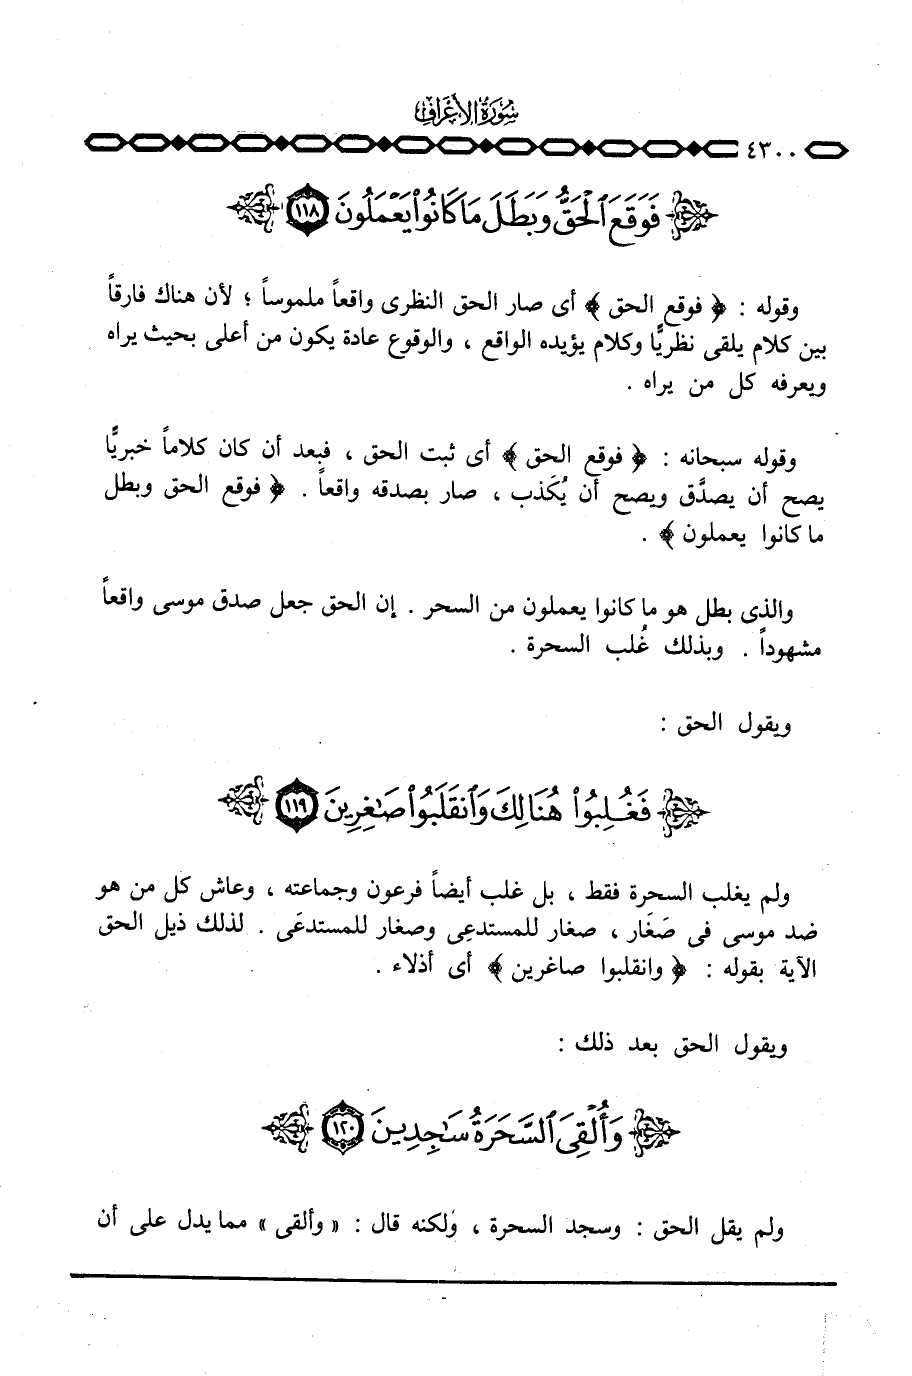 سُورَةُ الأَعْرَافِ
٤٣٠٠
فَوَقَعَ ٱلْحَقُّ وَبَطَلَ مَا كَانُوا۟ يَعْمَلُونَ ١١٨
وقوله : ﴿ فوقع الحق ﴾ أى صار الحق النظرى واقعاً ملموساً ؛ لأن هناك فارقاً
بين كلام يلقى نظريًّا وكلام يؤيده الواقع ، والوقوع عادة يكون من أعلى بحيث يراه
ويعرفه كل من يراه .
وقوله سبحانه : ﴿ فوقع الحق ﴾ أى ثبت الحق ، فبعد أن كان كلاماً خبريًّا
يصح أن يصدَّق ويصح أن يُكَذب ، صار بصدقه واقعاً . ﴿ فوقع الحق وبطل
ما كانوا يعملون ﴾ .
والذى بطل هو ما كانوا يعملون من السحر . إن الحق جعل صدق موسى واقعاً
مشهوداً . وبذلك غُلب السحرة .
ويقول الحق :
فَغُلِبُوا۟ هُنَالِكَ وَٱنقَلَبُوا۟ صَٰغِرِينَ ١١٩
ولم يغلب السحرة فقط ، بل غلب أيضاً فرعون وجماعته ، وعاش كل من هو
ضد موسى فى صَغَار ، صغار للمستدعِى وصغار للمستدعَى . لذلك ذيل الحق
الآية بقوله : ﴿ وانقلبوا صاغرين ﴾ أى أذلاء .
ويقول الحق بعد ذلك :
وَأُلْقِىَ ٱلسَّحَرَةُ سَٰجِدِينَ ١٢٠
ولم يقل الحق : وسجد السحرة ، ولكنه قال : « وألقى » مما يدل على أن